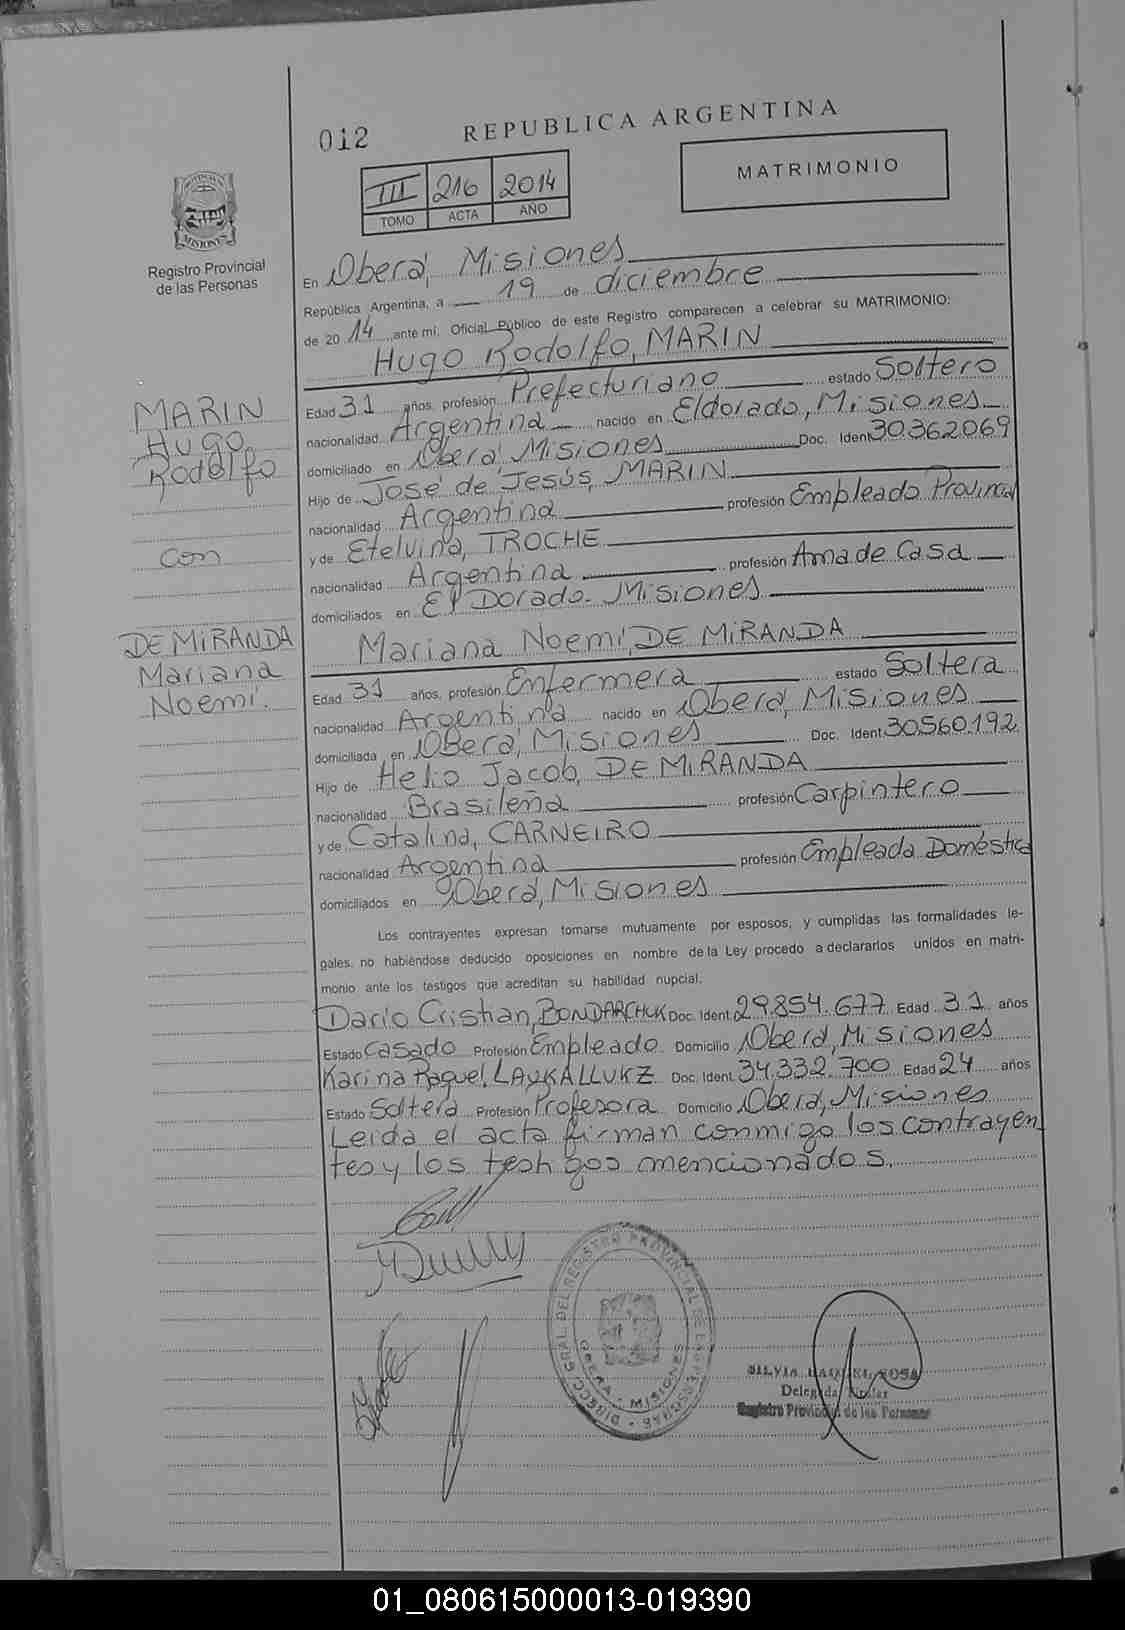 012
REPUBLICA ARGENTINA
III 216 2014
TOMO ACTA AÑO
MATRIMONIO
Registro Provincial
de las Personas
En Oberá, Misiones
República Argentina, a 19 de diciembre
de 2014 ante mí, Oficial Público de este Registro comparecen a celebrar su MATRIMONIO:
Hugo Rodolfo, MARIN
Edad 31 años, profesión Prefecturiano estado Soltero
nacionalidad Argentina nacido en Eldorado, Misiones
domiciliado en Oberá Misiones Doc. Iden 30.362.069
Hijo de José de Jesús, MARIN
nacionalidad Argentina profesión Empleado Provincial
y de Etelvina, TROCHE
nacionalidad Argentina profesión Ama de Casa
domiciliados en El Dorado - Misiones
Mariana Noemí, DE MIRANDA
Edad 31 años, profesión Enfermera estado Soltera
nacionalidad Argentina nacido en Oberá, Misiones
domiciliada en Oberá, Misiones Doc. Ident. 30.560.192
Hijo de Helio Jacob, DE MIRANDA
nacionalidad Brasileña profesión Carpintero
y de Catalina, CARNEIRO
nacionalidad Argentina profesión Empleada Doméstica
domiciliados en Oberá, Misiones
Los contrayentes expresan tomarse mutuamente por esposos, y cumplidas las formalidades le-
gales, no habiéndose deducido oposiciones en nombre de la Ley procedo a declararlos unidos en matri-
monio ante los testigos que acreditan su habilidad nupcial.
Darío Cristian, BONDARCHUK Doc. Ident. 29.854.677 Edad 31 años
Estado Casado Profesión Empleado Domicilio Oberá, Misiones
Karina Raquel, LAYKALLUKZ Doc. Ident. 34.332.700 Edad 24 años
Estado Soltera Profesión Profesora Domicilio Oberá, Misiones
Leida el acta firman conmigo los contrayen
tes y los testigos mencionados.
MARIN
Hugo
Rodolfo
Con
DE MIRANDA
Mariana
Noemí.
DIRECC. GRAL. DEL REGISTRO PROVINCIAL DE LAS PERSONAS
OBERA - MISIONES
SILVIA RAQUEL ROSA
Delegada Titular
Registro Provincial de las Personas
01_080615000013-019390